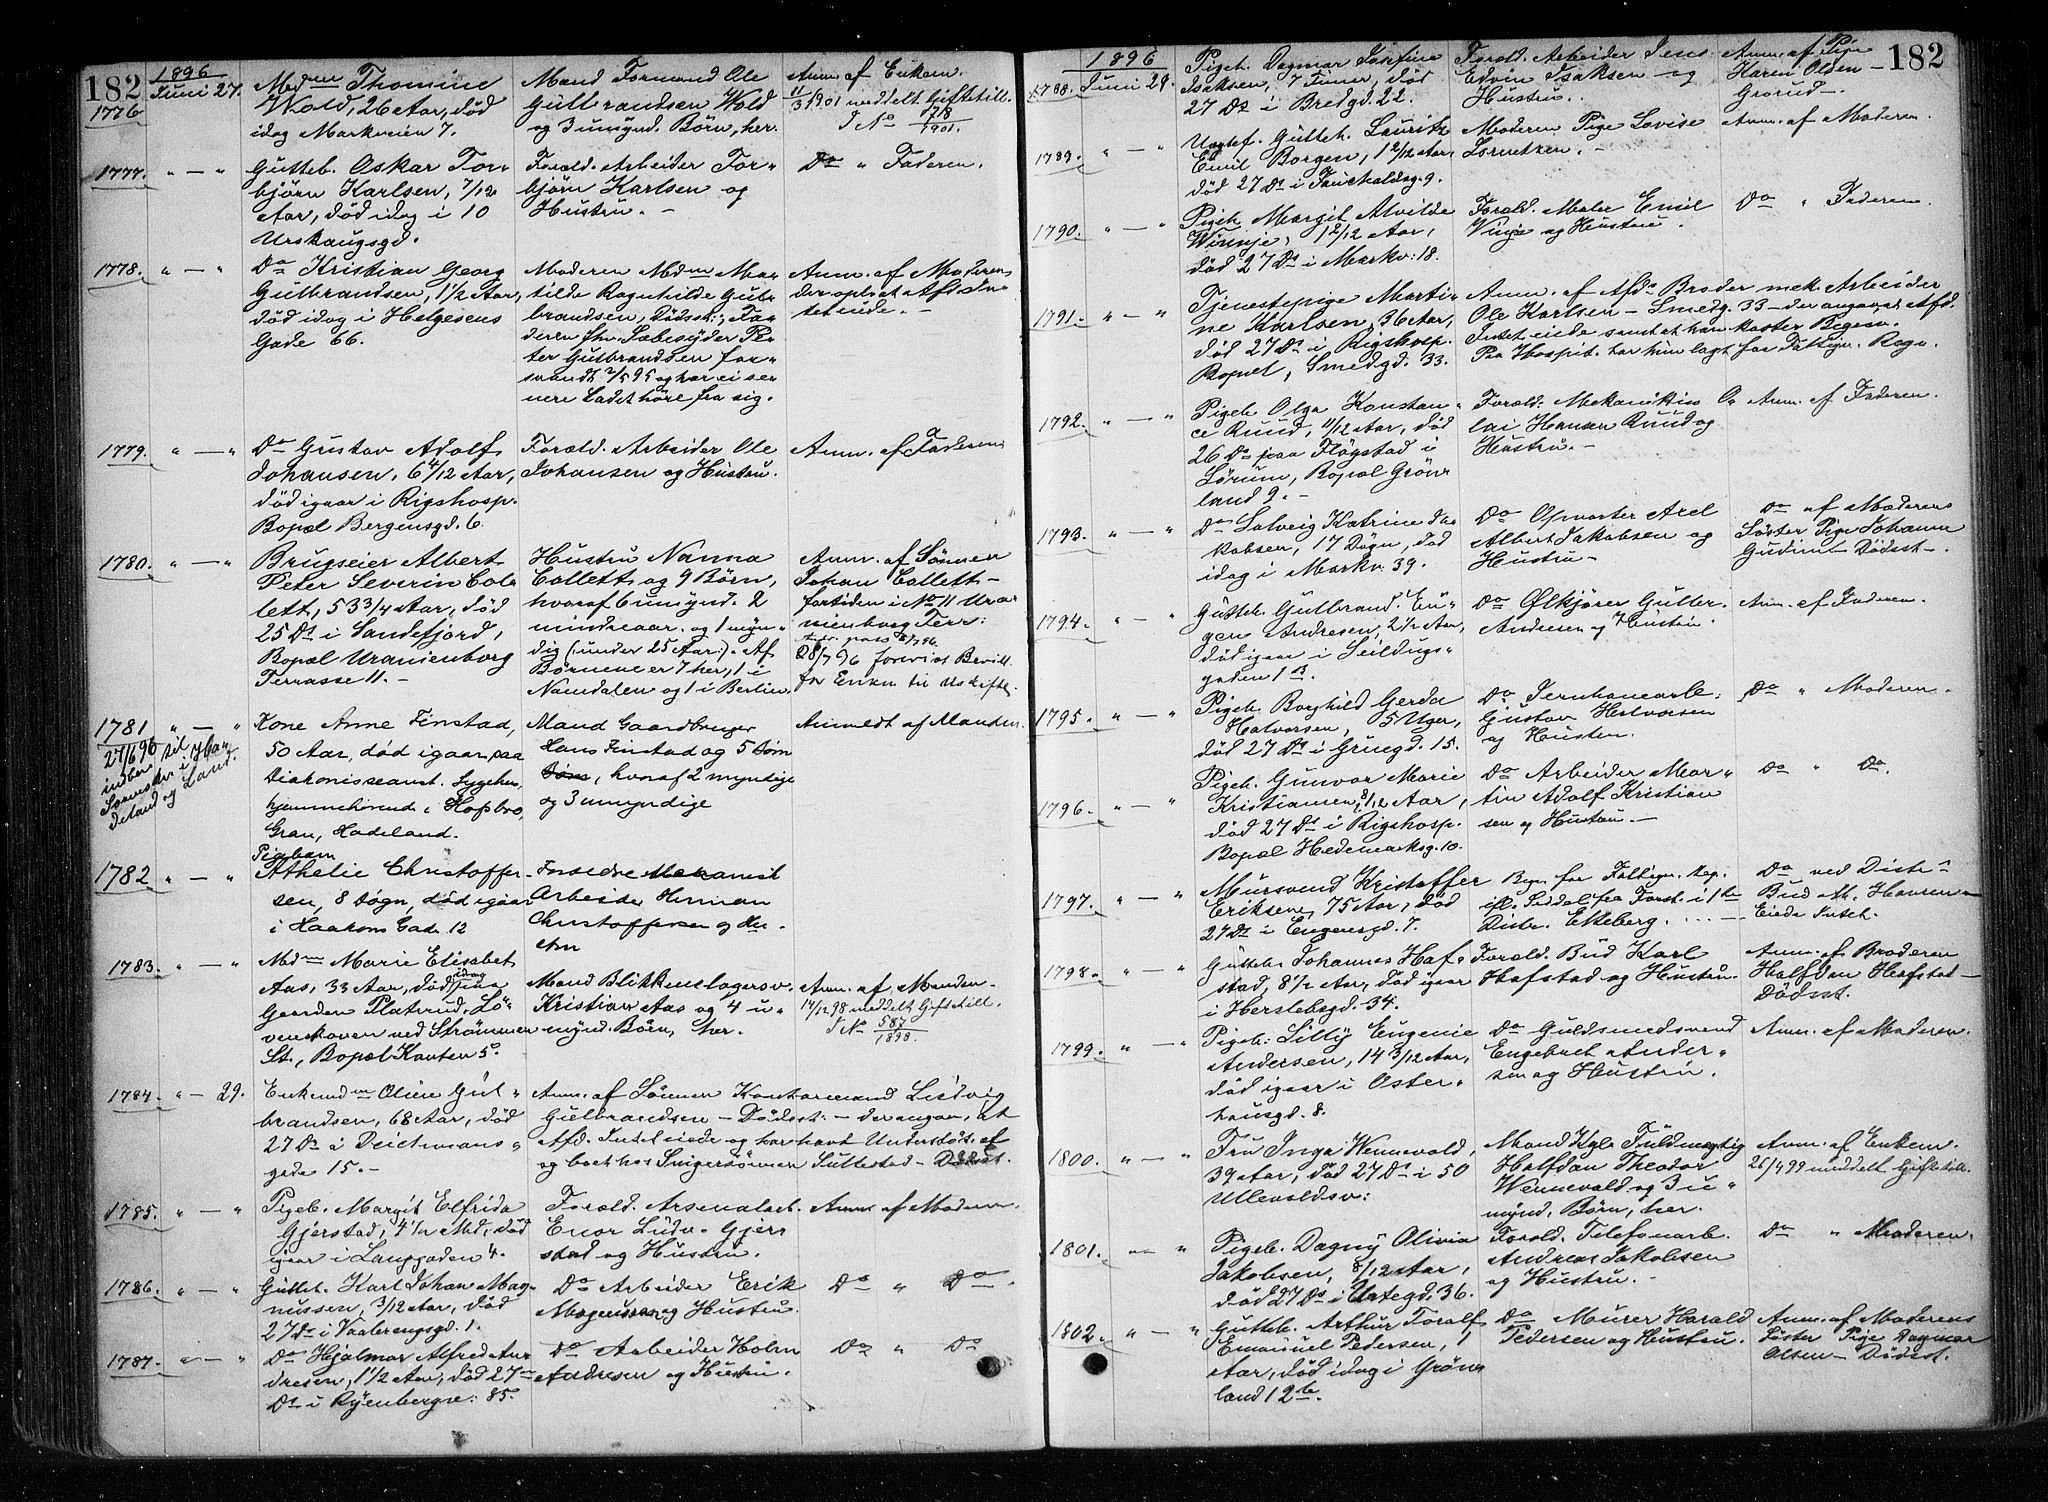 182
1896
1776
Juni 27.
Mdm Thomine
Wold, 26 Aar, død
idag Markveien 7.
Mand Formand Ole
Gulbrandsen Wold
og 3 umynd. Børn, her.
Anm. af Enkem.
11/3 1901 meddelt Giftetill.
J No 578/1901.
1777. " — "
Gutteb. Oskar Tor-
bjørn Karlsen, 7/12
Aar, død idag i 10
Urskaugsgd.
Foræld. Arbeider Tor-
bjørn Karlsen og
Hustru. —
Do " Faderen.
1778. " — "
Do Kristian Georg
Gulbrandsen, 1 1/2 Aar,
død idag i Helgesens
Gade 66.
Moderen Mdm Ma-
tilde Ragnhilde Gul-
brandsen, Dødsst.; Fa-
deren fhv. Sæbesyder Pe-
ter Gulbrandsen for-
svandt 2/5 95 og har ei se-
nere ladet høre fra sig.
Anm. af Moderen
der oplyst at Afd. In-
tet eiede. —
1779. " — "
Do Gustav Adolf
Johansen, 6 4/12 Aar,
død igaar i Rigshosp.
Bopæl Bergensgd. 6.
Foræld. Arbeider Ole
Johansen og Hustru.
Anm. af Faderen
1780. " — "
Brugseier Albert
Peter Severin Col-
lett, 53 3/4 Aar, død
25 Ds i Sandefjord,
Bopæl Uranienborg
Terrasse 11. —
Hustru Nanna
Collett og 9 Børn,
hvoraf 6 umynd. 2
mindreaar. og 1 myn-
dig (under 25 Aar). Af
Børnene er 7 her, 1 i
Namdalen og 1 i Berlin.
Anm. af Sønnen
Johan Collett —
fortiden i No 11 Ura-
nienborg Terr:
28/7 96 forevist Bevill.
for Enken til Uskifte.
1781 " — "
27/6 96
indber. til
Sorenskr. i Ha-
deland og Land.
Kone Anne Finstad,
50 Aar, død igaar paa
Diakonisseanst. Sygehus,
hjemmehørende i Hofsbro,
Gran, Hadeland.
Mand Gaardbruger
Hans Finstad og 5 Børn
Børn, hvoraf 2 myndige
og 3 umyndige
Anmeldt af Manden.
1782 " — "
Pigebarn
Athelie Christoffer-
sen, 8 Døgn, død igaar
i Haakons Gade 12
Forældre Mekanisk
Arbeider Herman
Christoffersen og Hu-
stru
1783. " — "
Mdm Marie Elisabet
Aas, 33 Aar, død idag paa
Gaarden Platerud, Lø-
venskoven ved Strømmen
St., Bopæl Kanten 5.
Mand Blikkenslagersv.
Kristian Aas og 4 u-
mynd. Børn, her.
Anm. af Manden.
14/12 98 meddelt Giftetill.
J No 587/1898
1784. " — 29.
Enkemdm Oline Gul-
brandsen, 68 Aar, død
27 Ds i Deichmans-
gade 15. —
Anm. af Sønnen Kontormand Ludvig
Gulbrandsen — Dødsst. — der angav, at
Afd. Intet eiede og har havt Understøt. af
og boet hos Svigersønnen
1785. " — "
Pigeb. Margit Elfrida
Gjerstad, 4 1/2 Md., død
igaar i Langgaden 4.
Foræld. Arsenalarb.
Enor Ludv. Gjer-
stad og Hustru.
Anm. af Moderen.
1786. " — "
Gutteb. Karl Johan Mag-
nussen, 3/12 Aar, død
27 Ds i Vaalerengsgd. 1.
Do Arbeider Erik
Magnussen og Hustru.
Do " Do.
1787. " — "
Do Hjalmar Alfred An-
dresen, 1 1/2 Aar, død 27
Ds i Ryenbergv. 85.
Do Arbeider Holm
Andresen og Hustru.
Do " Do
182
1896
1788. Juni 29.
Pigeb. Dagmar Josefine
Isaksen, 7 Timer, død
27 Ds i Bredgd. 22.
Foræld. Arbeider Jens
Edvin Isaksen og
Hustru.
Anm. af Pige
Karen Olsen
Grorud —
1789. " — "
Uægtef. Gutteb. Lauritz
Emil Borgen, 1 2/12 Aar,
død 27 Ds i Tøichaldsg. 9.
Moderen Pige Lovise
Lorentzen. —
Anm. af Moderen.
1790. " — "
Pigeb. Margit Alvilde
Winnje, 1 2/12 Aar,
død 27 Ds i Markv. 18.
Foræld. Maler Emil
Vinje og Hustru.
Do " Faderen.
1791. " — "
Tjenestepige Marti-
ne Karlsen, 36 Aar,
død 27 Ds i Rigshosp.
Bopæl, Smedgd. 33.
Anm. af Afds Broder mek. Arbeider
Ole Karlsen — Smedg. 33 — der angav, at Afd.
Intet eiede samt at han koster Begrav.
Paa Hospit. har hun lagt for Fattigv. Regn.
1792. " — "
Pigeb. Olga Konstan-
ce Ruud, 11/12 Aar, død
26 Ds paa Fløgstad i
Sørum, Bopæl Grøn-
land 9. —
Foræld. Mekanikus
lai Hansen Ruud og
Hustru. —
Anm. af Faderen.
1793. " — "
Do Solveig Katrine Ja-
kobsen, 17 Døgn, død
idag i Markv. 39.
Do Opvarter Axel
Albert Jakobsen og
Hustru —
Do af Moderens
Søster Pige Johanne
Dødsst. —
1794. " — "
Gutteb. Gulbrand Eu-
gen Andresen, 2 1/2 Aar,
død igaar i Seildugs-
gaden 1 B.
Do Ølkjører Gulbr.
Andresen og Hustru.
Anm. af Faderen.
1795. " — "
Pigeb. Borghild Gerda
Halvorsen, 5 Uger,
død 27 Ds i Gruegd. 15.
Do Jernbanearb.
Gustav Halvorsen
og Hustru.
Do " Moderen.
1796. " — "
Pigeb. Gunvor Marie
Kristiansen, 8/12 Aar,
død 27 Ds i Rigshosp.
Bopæl Hedemarksg. 10.
Do Arbeider Mar-
tin Adolf Kristian-
sen og Hustru. —
Do " Do.
1797. " — "
Mursvend Kristoffer
Eriksen, 75 Aar, død
27 Ds i Engensgd. 7.
Begr. for Fattigv. Reg.
ifl. Seddel fra Forst. i 1ste
Distr. Ekeberg. —
Do ved Distr.
Bud Hansen —
Eiede Intet.
1798. " — "
Gutteb. Johannes Haf-
stad, 8 1/2 Aar, død igaar
i Herslebsgd. 34.
Foræld. Bud Karl
Hafstad og Hustru
Anm. af Broderen
Halfdan Hafstad —
Dødsst.
1799. " — "
Pigeb. Lilly Eugenie
Andersen, 14 3/12 Aar,
død igaar i Oster-
hausgd. 8.
Do Guldsmedsvend
Engebret Ander-
sen og Hustru.
Anm. af Moderen.
1800. " — "
Fru Inga Wennevold,
39 Aar, død 27 Ds i 50
Ullevoldsv:
Mand Kgl. Fuldmægtig
Halfdan Theodor
Wennevold og 3 u-
mynd. Børn, her.
Anm. af Enkem.
26/4 99 meddelt Giftetill.
1801. " — "
Pigeb. Dagny Olivia
Jakobsen, 8/12 Aar,
død 27 Ds i Urtegd. 36.
Foræld. Telefonarb.
Andreas Jakobsen
og Hustru. —
Do " Moderen.
1802. " — "
Gutteb. Arthur Toralf
Emanuel Pedersen, 1
Aar, død idag i Grøn-
land 12 b.
Do Murer Harald
Pedersen og Hustru.
Anm. af Moderens
Søster Pige Dagmar
Olsen — Dødsst.